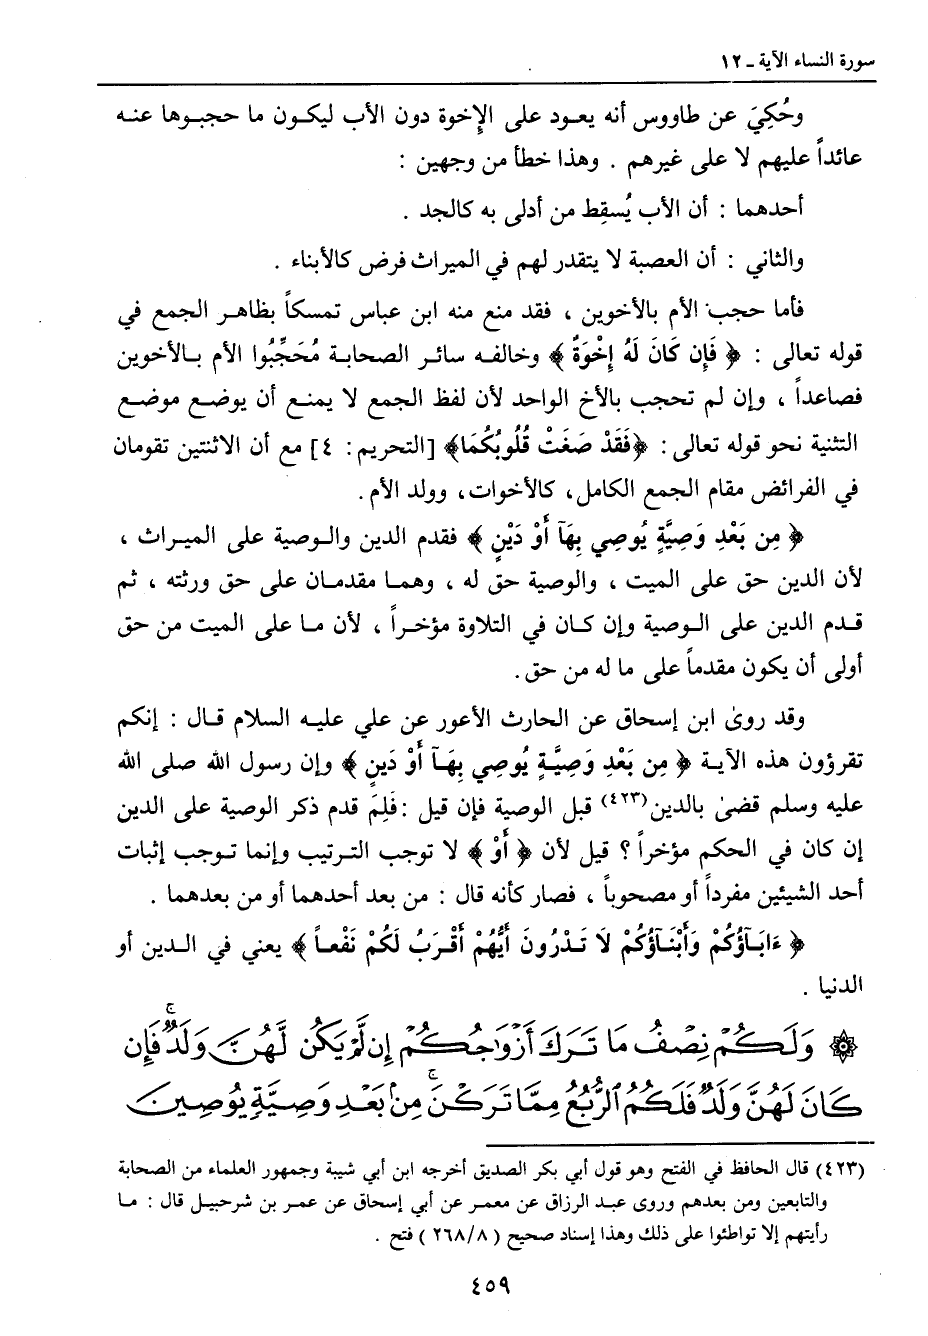 سورة النساء الآية - ١٢
وحُكِيَ عن طاووس أنه يعود على الإخوة دون الأب ليكون ما حجبوها عنه
عائداً عليهم لا على غيرهم . وهذا خطأ من وجهين :
أحدهما : أن الأب يُسقِط من أدلى به كالجد .
والثاني : أن العصبة لا يتقدر لهم في الميراث فرض كالأبناء .
فأما حجب الأم بالأخوين ، فقد منع منه ابن عباس تمسكاً بظاهر الجمع في
قوله تعالى : ﴿ فَإِن كَانَ لَهُ إِخْوَةٌ ﴾ وخالفه سائر الصحابة مُحَجِّبُوا الأم بالأخوين
فصاعداً ، وإن لم تحجب بالأخ الواحد لأن لفظ الجمع لا يمنع أن يوضع موضع
التثنية نحو قوله تعالى : ﴿فَقَدْ صَغَتْ قُلُوبُكُمَا﴾ [التحريم : ٤] مع أن الاثنتين تقومان
في الفرائض مقام الجمع الكامل، كالأخوات، وولد الأم.
﴿ مِن بَعْدِ وَصِيَّةٍ يُوصِي بِهَآ أَوْ دَيْنٍ ﴾ فقدم الدين والوصية على الميراث ،
لأن الدين حق على الميت ، والوصية حق له ، وهما مقدمان على حق ورثته ، ثم
قدم الدين على الوصية وإن كان في التلاوة مؤخراً ، لأن ما على الميت من حق
أولى أن يكون مقدماً على ما له من حق.
وقد روىٰ ابن إسحاق عن الحارث الأعور عن علي عليه السلام قال : إنكم
تقرؤون هذه الآية ﴿ مِن بَعْدِ وَصِيَّةٍ يُوصِي بِهَآ أَوْ دَينٍ ﴾ وإن رسول الله صلى الله
عليه وسلم قضىٰ بالدين(٤٢٣) قبل الوصية فإن قيل : فلِمَ قدم ذكر الوصية على الدين
إن كان في الحكم مؤخراً ؟ قيل لأن ﴿ أَوْ ﴾ لا توجب الترتيب وإنما توجب إثبات
أحد الشيئين مفرداً أو مصحوباً ، فصار كأنه قال : من بعد أحدهما أو من بعدهما .
﴿ ءَابَآؤُكُمْ وَأَبْنَاؤُكُمْ لَا تَدْرُونَ أَيُّهُمْ أَقْرَبُ لَكُمْ نَفْعاً ﴾ يعني في الدين أو
الدنيا .
۞ وَلَكُمْ نِصْفُ مَا تَرَكَ أَزْوَٰجُكُمْ إِن لَّمْ يَكُن لَّهُنَّ وَلَدٌ ۚ فَإِن
كَانَ لَهُنَّ وَلَدٌ فَلَكُمُ ٱلرُّبُعُ مِمَّا تَرَكْنَ ۚ مِنۢ بَعْدِ وَصِيَّةٍ يُوصِينَ
(٤٢٣) قال الحافظ في الفتح وهو قول أبي بكر الصديق أخرجه ابن أبي شيبة وجمهور العلماء من الصحابة
والتابعين ومن بعدهم وروى عبد الرزاق عن معمر عن أبي إسحاق عن عمر بن شرحبيل قال : ما
رأيتهم إلا تواطئوا على ذلك وهذا إسناد صحيح ( ٢٦٨/٨ ) فتح .
٤٥٩